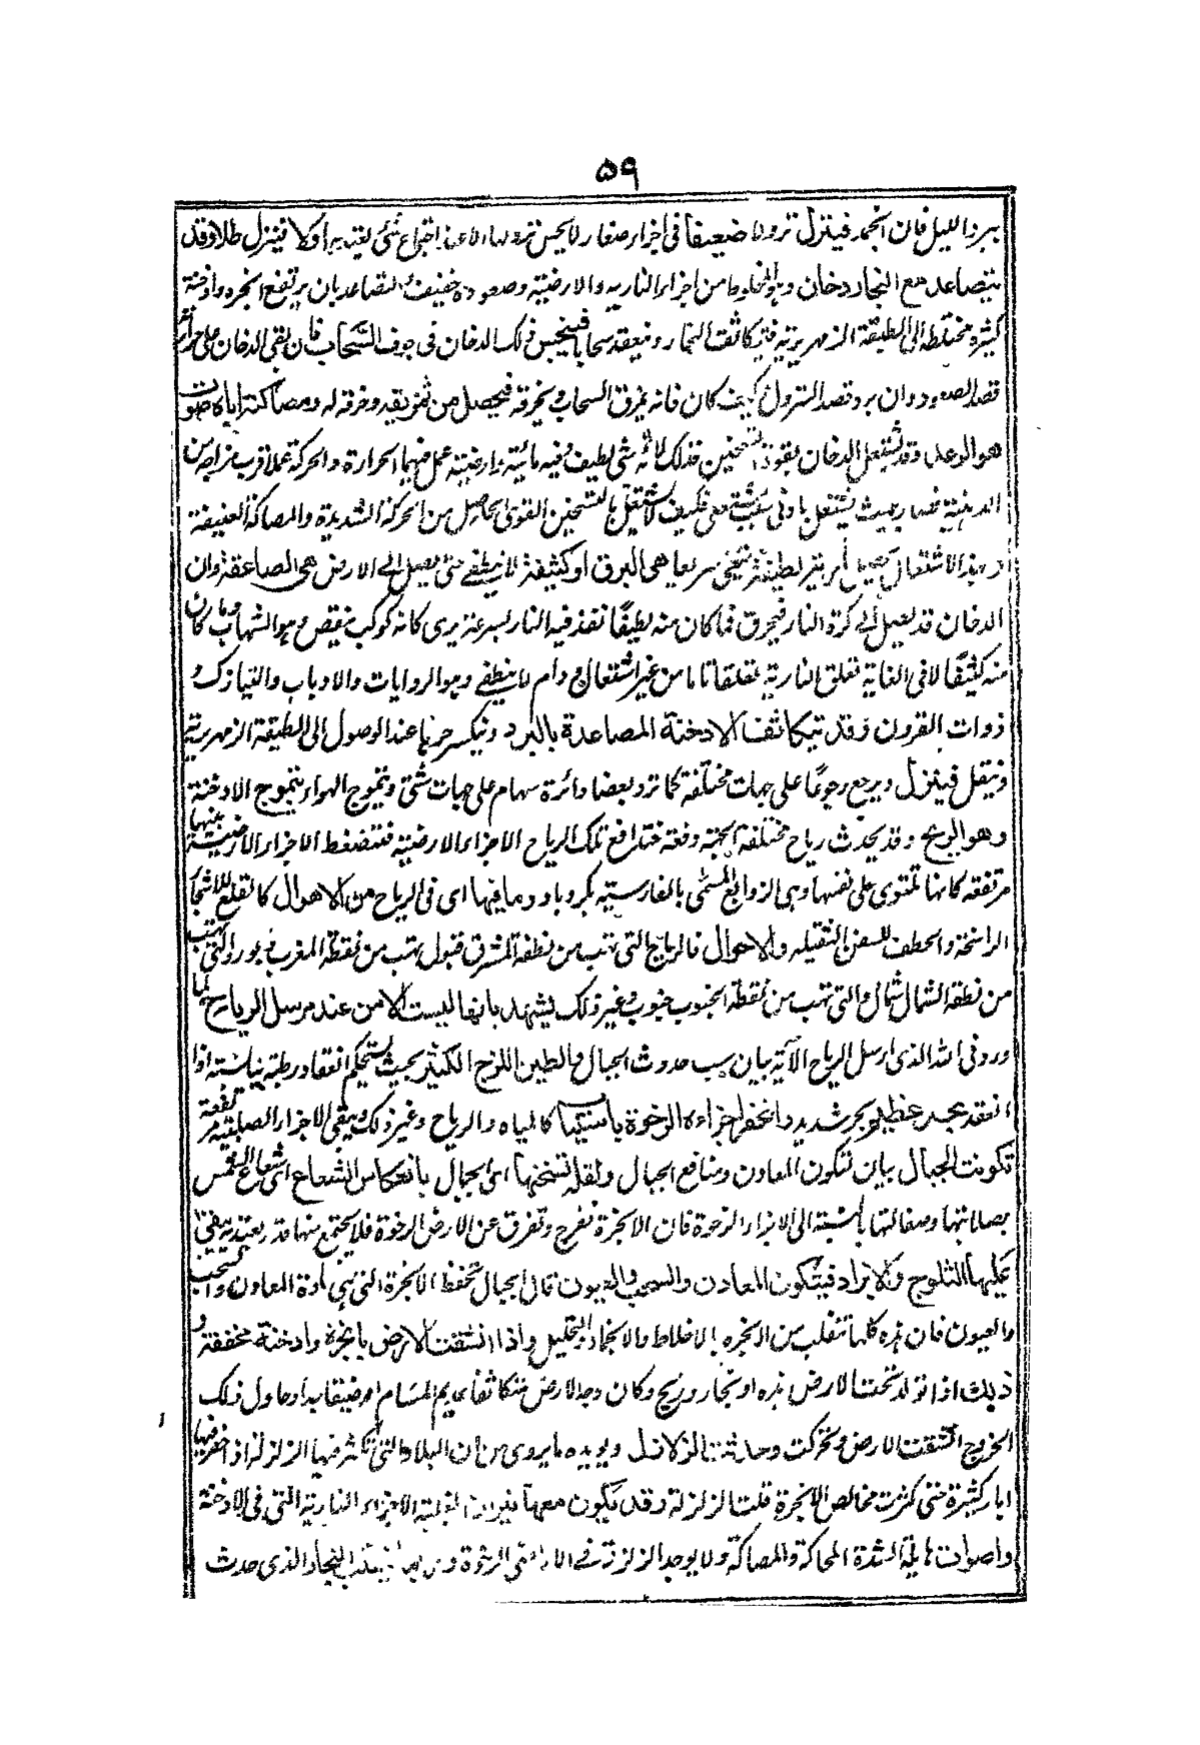 ٥٩
ببرد الليل فان انجمد فينزل نزولا ضعيفا فى اجزاء صغار لا يحس نزولها الا عند اجتماع شئ يعتد به اولا فينزل طلا وقد
يتصاعد مع البخار دخان وهو المخلوط من اجزاء النارية والارضية وصعوده خفيف التصاعد بان يرتفع ابخرة وادخنة
كثيرة مختلطة الى الطبقة الزمهريرية فيتكاثف البخار وينعقد سحابا فينحبس ذلك الدخان فى جوف السحاب فان بقى الدخان على حرارته
قصد الصعود وان برد قصد النزول كيف كان فانه يمزق السحاب ويخرقه فيحصل من تمزيقه وخرقه له ومصاكته اياه صوت
هو الرعد وقد يشتعل الدخان بقوة التسخين فذلك لانه شئ لطيف وفيه مائية وارضية عمل فيهما الحرارة والحركة عملا قرب مزاجه من
الدهنية فصار بحيث يشتعل بادنى سبب فكيف لا يشتعل بالتسخين القوى الحاصل من الحركة الشديدة والمصاكة العنيفة
الاشتعال لطيفة سريعا هى البرق او كثيفة لا ينطفى حتى يصل الى الارض هى الصاعقة وان
الدخان قد يصل الى كرة النار فيحرق فما كان منه لطيفا نفذ فيه النار بسرعة يرى كانه كوكب منقض وهو الشهاب وما كان
منه كثيفا لا فى الغاية تعلق النارية تعلقا تاما من غير اشتعال ودام لا ينطفى وهو الروايات والاذناب والنيازك و
ذوات القرون وقد تتكاثف الادخنة المصاعدة بالبرد وينكسر حرها عند الوصول الى الطبقة الزمهريرية
فيثقل فينزل ويرجع رجوعا على جهات مختلفة كما ترد بعضا دائرة سهام على جهات شتى ويتموج الهواء بتموج الادخنة
وهو الريح وقد يحدث رياح مختلفة الجهة دفعة فتدافع تلك الرياح الاجزاء الارضية فتنضغط الاجزاء الارضية بينها
مرتفعة كانها تلتوى على نفسها وهى الزوابع المسمى بالفارسية بگردباد وما فيها اى فى الرياح من الاهوال كالقلع للاشجار
الراسخة والخطف للسفن الثقيلة والاحوال فالرياح التى تهب من نقطة المشرق قبول تهب من نقطة المغرب دبور والتى تهب
من نقطة الشمال شمال والتى تهب من نقطة الجنوب جنوب وغير ذلك يشهد بانها ليست الا من عند مرسل الرياح كما
ورد فى الله الذى ارسل الرياح الآية بيان سبب حدوث الجبال فالطين اللزج الكثير بحيث يستحكم انعقاد رطبة بيابسته اذا
انعقد بحر عظيم بحر شديد وانحفر اجزاءه الرخوة باسبابها كالمياه والرياح وغير ذلك ويبقى الاجزاء الصلبة مرتفعة
تكونت الجبال بيان لتكون المعادن ومنافع الجبال ولقلة تسخنها اى الجبال بانعكاس الشعاع اى شعاع الشمس
بصلابتها وصقالتها بالنسبة الى الاجزاء الرخوة فان الابخرة تفرح وتفرق عن الارض الرخوة فلا يجتمع منها قدر يعتد به يبقى
عليها الثلوج والابراد فيتكون المعادن والسحب والعيون فان الجبال تحفظ الابخرة التى هى مادة المعادن والسحب
والعيون فان هذه كلها تنقلب من الابخرة بالاختلاط والانجماد والتحليل واذا انشقت الارض بابخرة وادخنة مخففة و
ذلك اذا تولد تحت الارض ابخرة او بخار وريح وكان وجه الارض متكاثفا عديم المسام او ضيقا جدا وحاول ذلك
الخروج انشقت الارض وتحركت وحدثت الزلازل ويؤيده ما يروى من ان البلاد التى تكثر فيها الزلزلة اذا حفر فيها
آبار كثيرة حتى كثرت مخالص الابخرة قلت الزلزلة وقد يكون معها نيران لغلبة الاجزاء النارية التى فى الادخنة
واصوات هايلة لشدة المحاكة والمصاكة ولا يوجد الزلزلة فى الاراضى الرخوة البخار الذى حدث